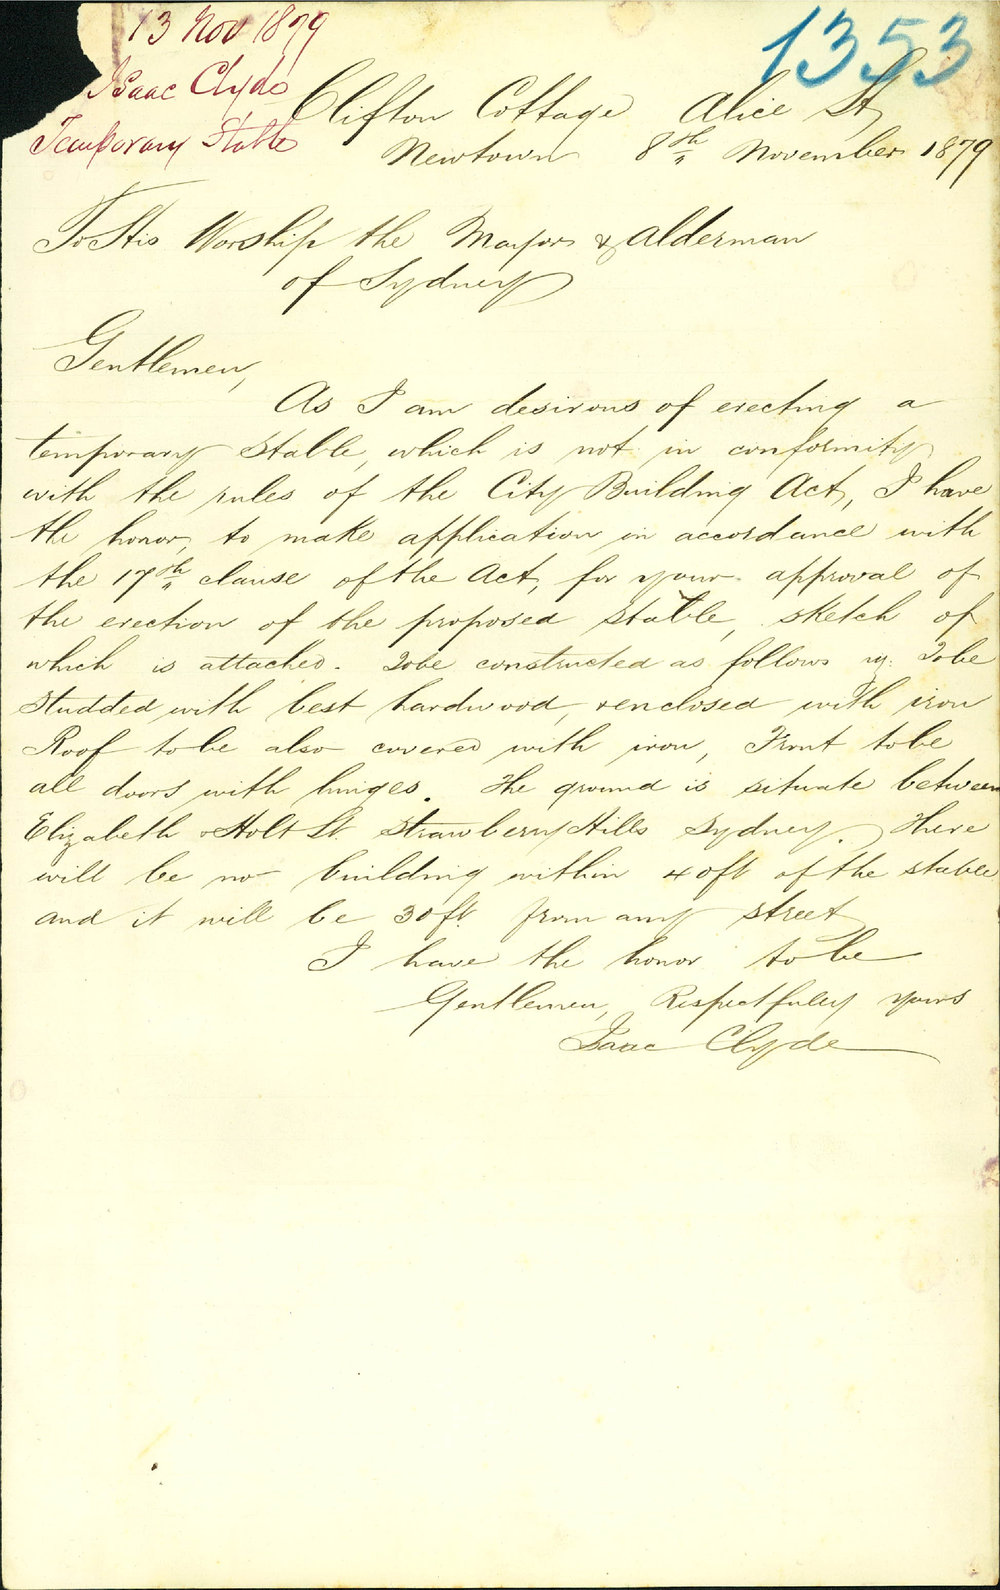 13 Nov 1879
Isaac Clyde
Temporary Stable
1353
Clifton Cottage Alice St
Newtown 8th November 1879
To His Worship the Mayor & Alderman
of Sydney
Gentlemen,
As I am desirous of erecting a
temporary Stable, which is not in conformity
with the rules of the City Building Act, I have
the honor, to make application in accordance with
the 17th clause of the Act, for your approval of
the erection of the proposed stable, sketch of
which is attached. To be constructed as follows To be
studded with best hardwood, & enclosed with iron
Roof to be also covered with iron, Front to be
all doors with hinges. The ground is situate between
Elizabeth & Holt St. Strawberry Hills Sydney. There
will be no building within 40ft of the stable
and it will be 30ft. from any street
I have the honor to be
Gentlemen, Respectfully yours
Isaac Clyde